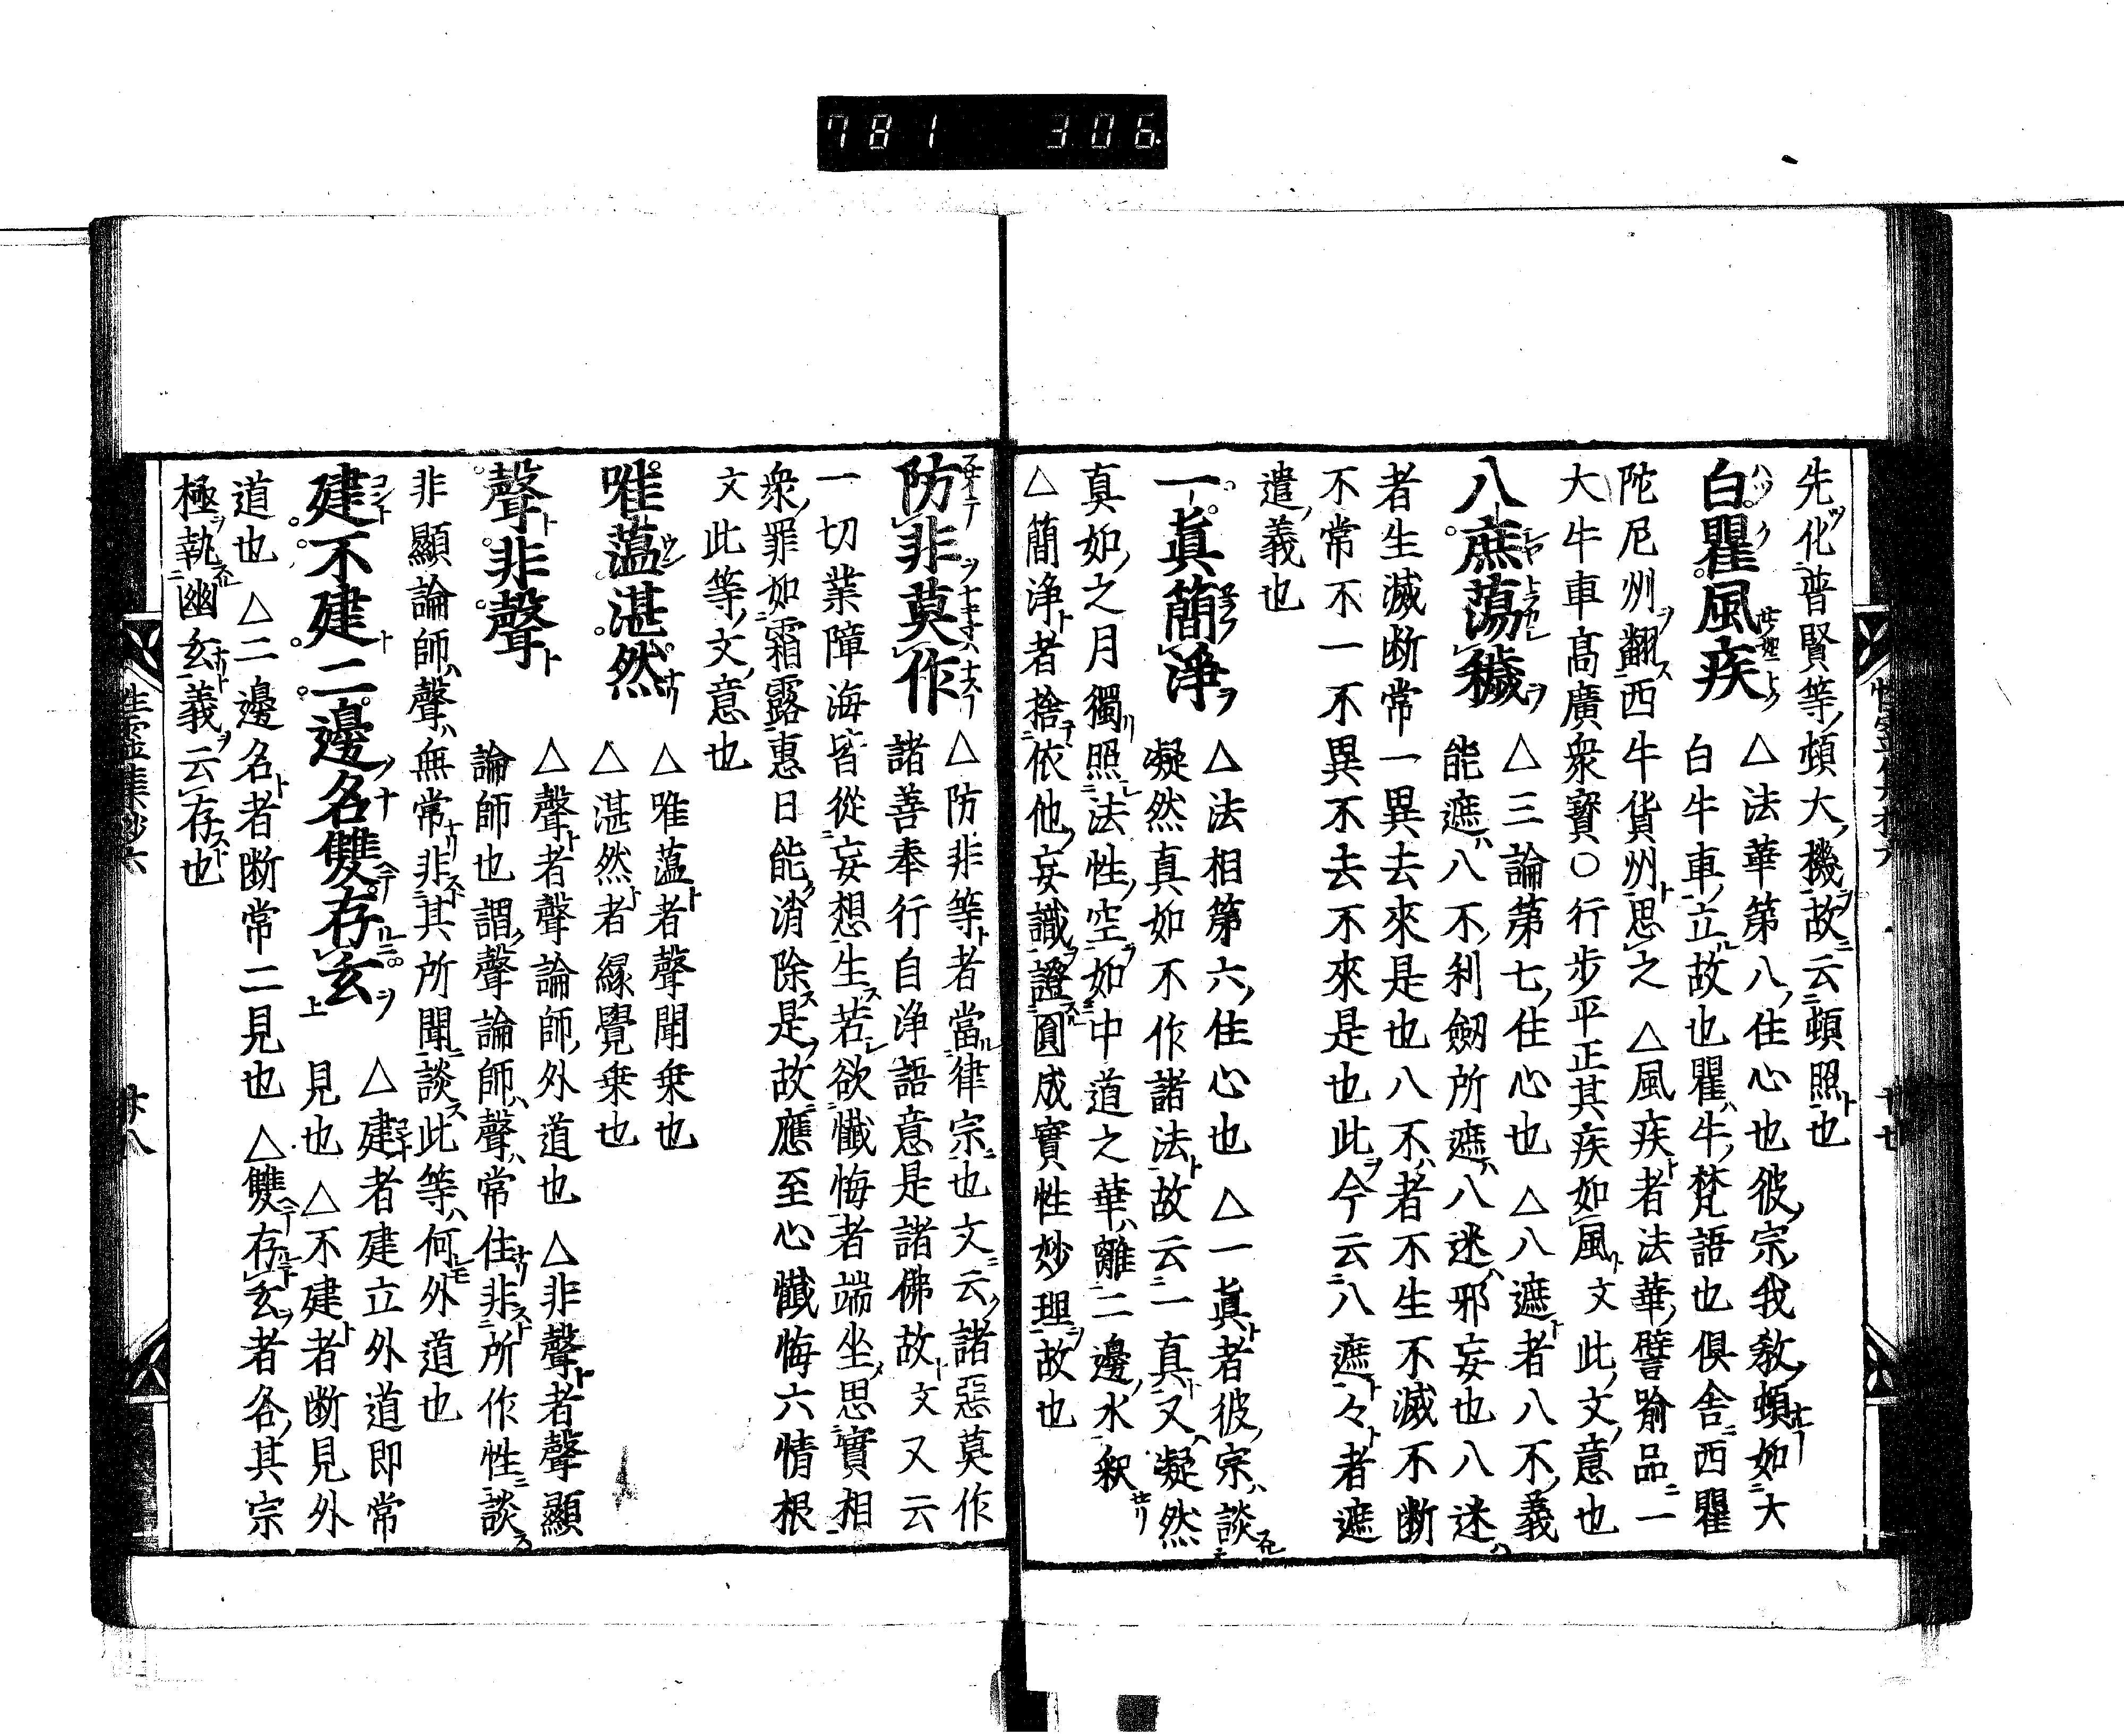 781 306
先化普賢等頓大機故云頓照也
白瞿風疾
△法華第八住心也彼宗我教頓如大
白牛車立故也瞿牛梵語也俱舍西瞿
陀尼州翻西牛貨州思之 △風疾者法華譬喻品一
大牛車高廣衆寳〇行步平正其疾如風文此文意也
八䗪蕩穢
△三論第七住心也 △八遮者八不義
能遮八不利劔所遮八迷邪妄也八迷
者生滅断常一異去來是也八不者不生不滅不断
不常不一不異不去不來是也此今云八遮々者遮
遣義也
一眞簡淨
△法相第六住心也 △一眞者彼宗談
凝然真如不作諸法故云一真又凝然
真如之月獨照法性空如中道之華離二邊水釈
△簡淨者捨依他妄識證圓成實性妙理故也
防非莫作
△防非等者當律宗也文云諸惡莫作
諸善奉行自淨語意是諸佛故文又云
一切業障海皆從妄想生若欲懺悔者端坐思實相
衆罪如霜露惠日能消除是故應至心懺悔六情根
文此等文意也
唯薀湛然
△唯薀者聲聞乗也
△湛然者縁覺乗也
聲非聲
△聲者聲論師外道也 △非聲者聲顯
論師也謂聲論師聲常住非所作性談
非顯論師聲無常非其所聞談此等何外道也
建不建二邊名雙存玄
△建者建立外道即常
見也 △不建者断見外
道也 △二邊名者断常二見也 △雙存玄者各其宗
極執幽玄義云存也
廿八